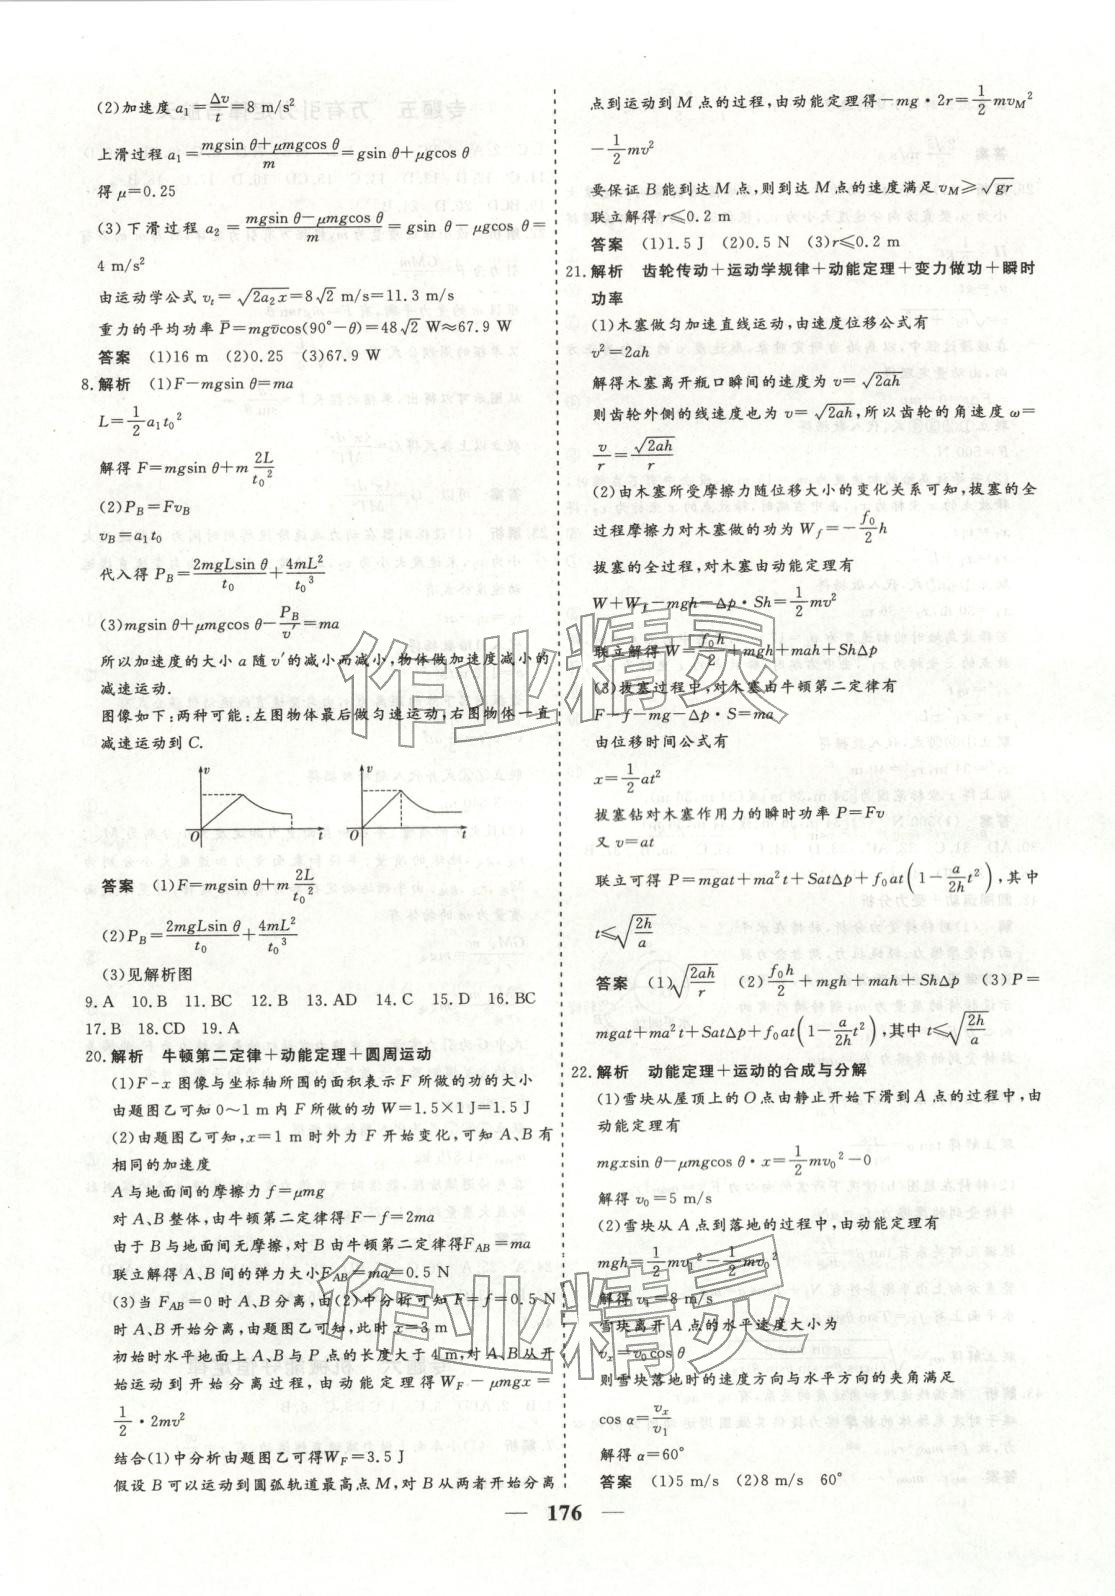 (2)加速度 a₁=Δv/t=8 m/s²
上滑过程 a₁=(mgsin θ+μmgcos θ)/m=gsin θ+μgcos θ
得 μ=0.25
(3)下滑过程 a₂=(mgsin θ-μmgcos θ)/m=gsin θ-μgcos θ=
4 m/s²
由运动学公式 vₜ=√(2a₂x)=8√2 m/s=11.3 m/s
重力的平均功率 P̄=mgv̄cos(90°-θ)=48√2 W≈67.9 W
答案 (1)16 m (2)0.25 (3)67.9 W
8.解析 (1)F-mgsin θ=ma
L=1/2 a₁t₀²
解得 F=mgsin θ+m 2L/t₀²
(2)P_B=Fv_B
v_B=a₁t₀
代入得 P_B=2mgLsin θ/t₀+4mL²/t₀³
(3)mgsin θ+μmgcos θ-P_B/v′=ma
所以加速度的大小 a 随 v′的减小而减小,物体做加速度减小的
减速运动.
图像如下:两种可能:左图物体最后做匀速运动,右图物体一直
减速运动到 C.
v
O
t
v
O
t
答案 (1)F=mgsin θ+m 2L/t₀²
(2)P_B=2mgLsin θ/t₀+4mL²/t₀³
(3)见解析图
9.A 10.B 11.BC 12.B 13.AD 14.C 15.D 16.BC
17.B 18.CD 19.A
20.解析 牛顿第二定律+动能定理+圆周运动
(1)F-x 图像与坐标轴所围的面积表示 F 所做的功的大小
由题图乙可知 0～1 m 内 F 所做的功 W=1.5×1 J=1.5 J
(2)由题图乙可知,x=1 m 时外力 F 开始变化,可知 A、B 有
相同的加速度
A 与地面间的摩擦力 f=μmg
对 A、B 整体,由牛顿第二定律得 F-f=2ma
由于 B 与地面间无摩擦,对 B 由牛顿第二定律得F_AB=ma
联立解得 A、B 间的弹力大小F_AB=ma=0.5 N
(3)当 F_AB=0 时 A、B 分离,由(2)中分析可知 F=f=0.5 N
时 A、B 开始分离,由题图乙可知,此时 x=3 m
初始时水平地面上 A 与 P 点的长度大于 4 m,对 A、B 从开
始运动到开始分离过程,由动能定理得 W_F-μmgx=
1/2·2mv²
结合(1)中分析由题图乙可得W_F=3.5 J
假设 B 可以运动到圆弧轨道最高点 M,对 B 从两者开始分离
点到运动到 M 点的过程,由动能定理得-mg·2r=1/2 mv_M²
-1/2 mv²
要保证 B 能到达 M 点,则到达 M 点的速度满足 v_M≥√(gr)
联立解得 r≤0.2 m
答案 (1)1.5 J (2)0.5 N (3)r≤0.2 m
21.解析 齿轮传动+运动学规律+动能定理+变力做功+瞬时
功率
(1)木塞做匀加速直线运动,由速度位移公式有
v²=2ah
解得木塞离开瓶口瞬间的速度为 v=√(2ah)
则齿轮外侧的线速度也为 v=√(2ah),所以齿轮的角速度 ω=
v/r=√(2ah)/r
(2)由木塞所受摩擦力随位移大小的变化关系可知,拔塞的全
过程摩擦力对木塞做的功为 W_f=-f₀/2 h
拔塞的全过程,对木塞由动能定理有
W+W_f-mgh-Δp·Sh=1/2 mv²
联立解得W=f₀h/2+mgh+mah+ShΔp
(3)拔塞过程中,对木塞由牛顿第二定律有
F-f-mg-Δp·S=ma
由位移时间公式有
x=1/2 at²
拔塞钻对木塞作用力的瞬时功率 P=Fv
又 v=at
联立可得 P=mgat+ma²t+SatΔp+f₀at(1-a/2h t²),其中
t≤√(2h/a)
答案 (1)√(2ah/r) (2)f₀h/2+mgh+mah+ShΔp (3)P=
mgat+ma²t+SatΔp+f₀at(1-a/2h t²),其中 t≤√(2h/a)
22.解析 动能定理+运动的合成与分解
(1)雪块从屋顶上的 O 点由静止开始下滑到 A 点的过程中,由
动能定理有
mgxsin θ-μmgcos θ·x=1/2 mv₀²-0
解得 v₀=5 m/s
(2)雪块从 A 点到落地的过程中,由动能定理有
mgh=1/2 mv₁²-1/2 mv₀²
解得 v₁=8 m/s
雪块离开 A 点的水平速度大小为
vₓ=v₀cos θ
则雪块落地时的速度方向与水平方向的夹角满足
cos α=vₓ/v₁
解得 α=60°
答案 (1)5 m/s (2)8 m/s 60°
— 176 —
作业精灵
作业精灵